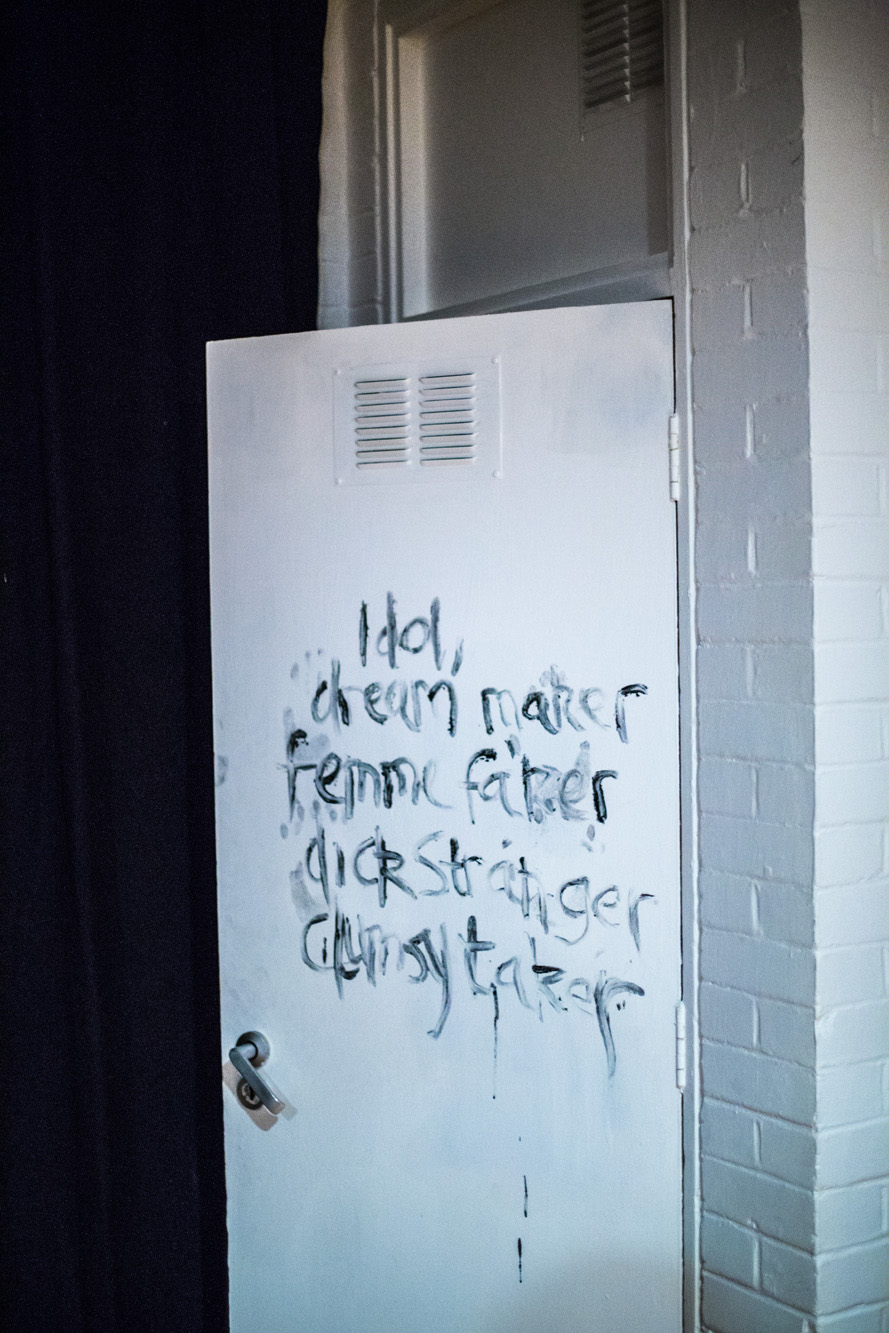 Idol,
dream maker
femme faker
dick stranger
clumsy taker